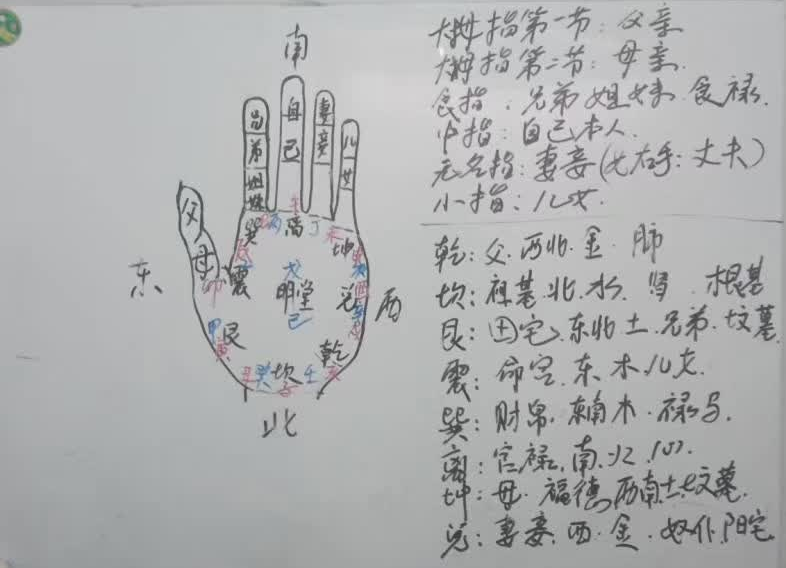 南
兄弟姐妹
自己
妻妾
儿女
父
母
巽 丙 离 丁 未 坤
东
卯 震
戊
明堂
己
兑
西
甲 艮
寅
乾
丑 癸 坎 子 壬 亥
北
大拇指第一节:父亲
大拇指第二节:母亲.
食指.兄弟姐妹.食禄.
中指:自己本人.
无名指:妻妾(女右手:丈夫)
小指:儿女.
乾:父.西北.金.肺
坎:祖基.北.水.肾.根基
艮:田宅.东北土.兄弟.坟墓.
震:命宫.东.木.儿女.
巽:财帛.东南木.禄马.
离:官禄.南.火.心.
坤:母.福德.西南土.坟墓.
兑:妻妾.西.金.奴仆.阳宅